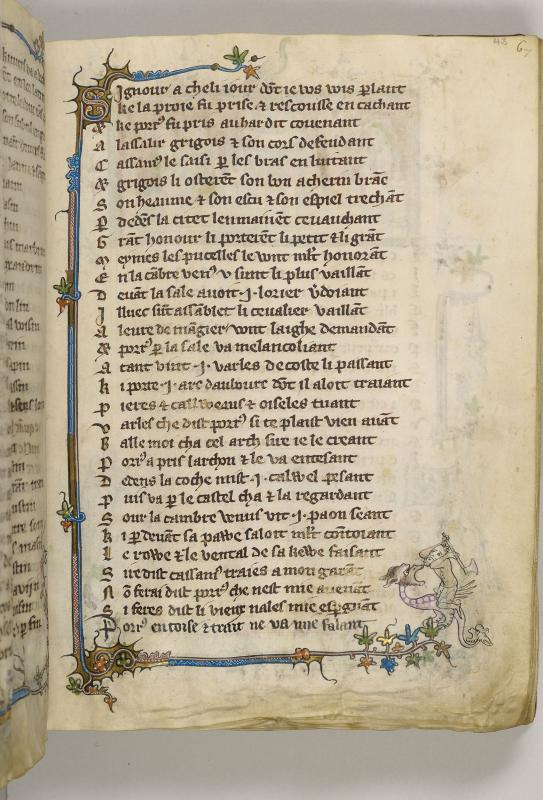 48 67
Signour a cheli iour dōt ie ws wis ꝑlant
ke la proie fu prise ⁊ rescousse en cachant
ke porrꝰ fu pris au hardit couenant
A lassalir grigois ⁊ son cors defendant
C assanꝰ le saisi ꝑ les bras en luitant
grigois li osterēt son bon acherin brāc
S on heaume ⁊ son escu ⁊ son espiel trechāt
P dedēs la citet lenmainēt ceuauchant
G rāt honour li porterēt li petit ⁊ li grāt
M eymes les pucelles le wnt mlt̄ honorāt
E n la cābre venꝰ v sunt li plus vaillāt
D euāt la sale auoit ·i· lorier v̄doiant
I lluec sūt assāblet li ceualier vaillāt
A leure de māgier wnt laighe demandāt
porrꝰ ꝑ la sale va melancoliant
A tant vint ·i· varles de coste li passant
k i porte ·i· arc daubour dōt il aloit traiant
P ieres ⁊ callweaus ⁊ oiseles tuant
V arles che dist porrꝰ si te plaist vien auāt
B alle moi cha cel arch sire ie le creant
P orrꝰ a pris larchon ⁊ le va entesant
D edens la coche mist ·i· calwel pesant
P uis va ꝑ le castel cha ⁊ la regardant
S our la cambre venus vit ·i· paon seant
k i ꝑ deuāt sa pawe saloit mlt̄ cointoiant
L e rowe ⁊ le vental de sa kewe faisant
S ire dist cassanꝰ traies a mon garāt
N ō ferai dist porrꝰ che nest mie auenāt
S i feres dist li vieux nales mie espgnāt
P orrꝰ entoise ⁊ trait ne va mie falant